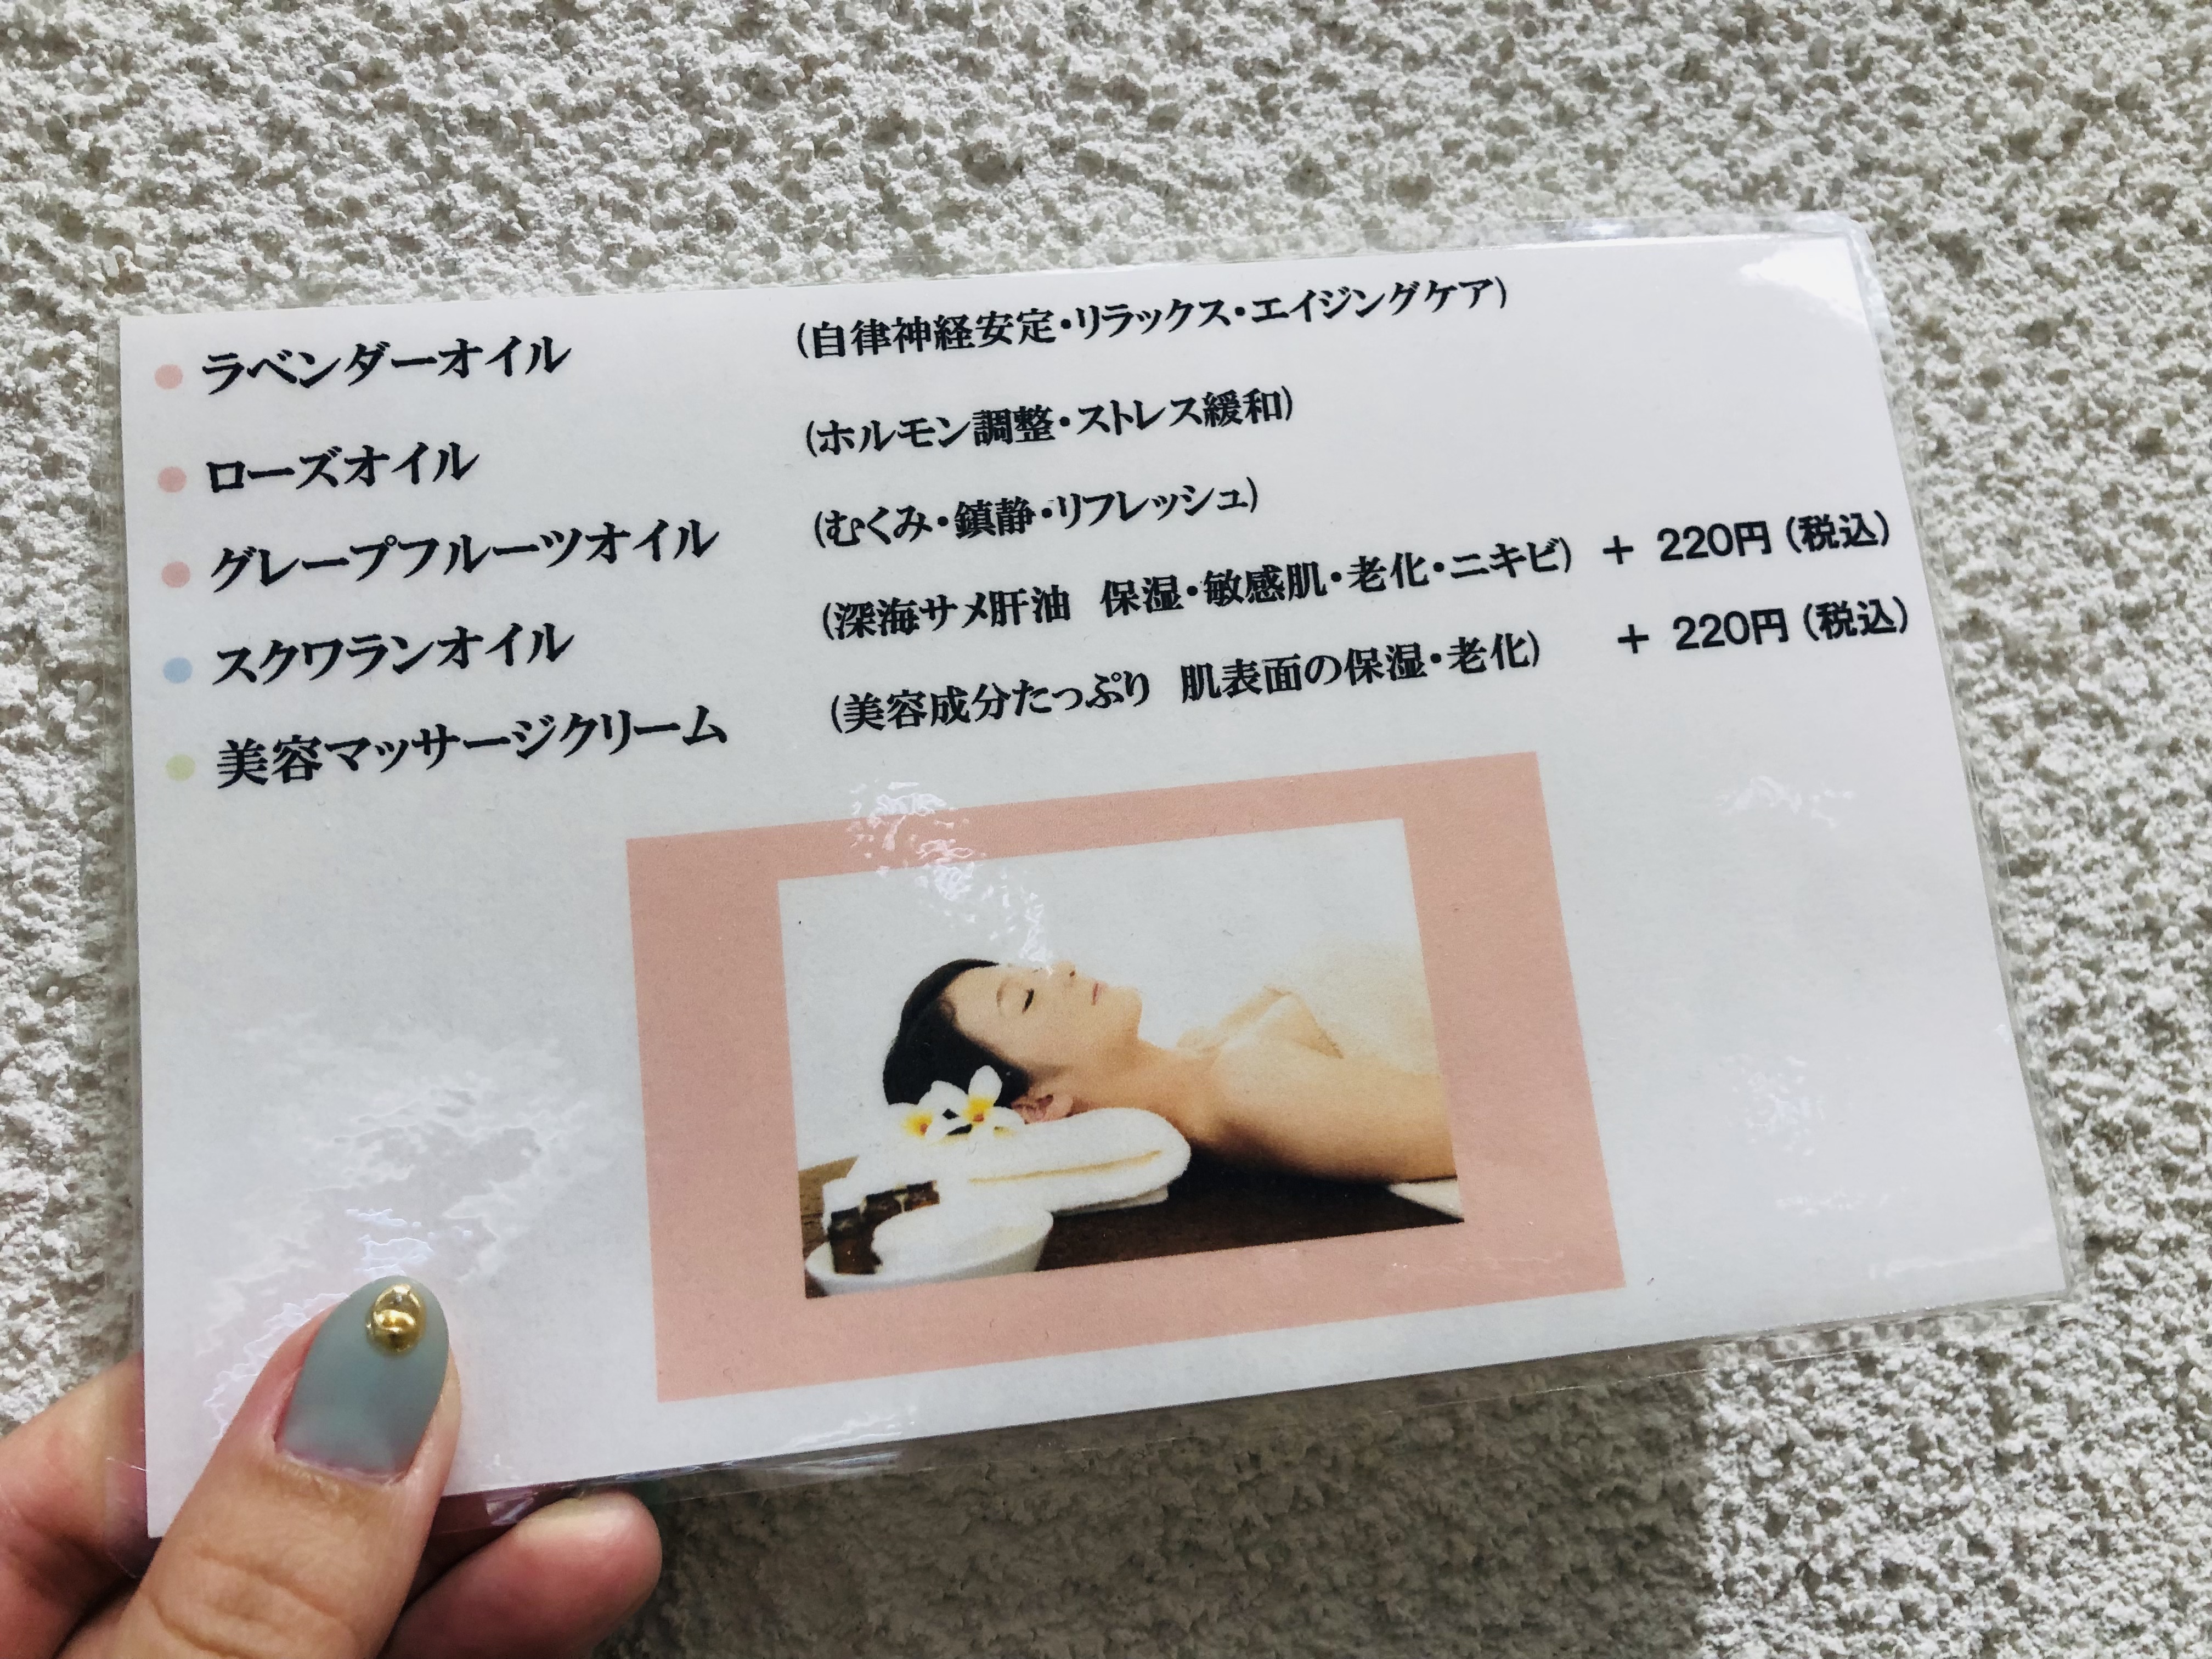 ラベンダーオイル (自律神経安定・リラックス・エイジングケア)
ローズオイル (ホルモン調整・ストレス緩和)
グレープフルーツオイル (むくみ・鎮静・リフレッシュ)
スクワランオイル (深海サメ肝油 保湿・敏感肌・老化・ニキビ) + 220円(税込)
美容マッサージクリーム (美容成分たっぷり 肌表面の保湿・老化) + 220円(税込)